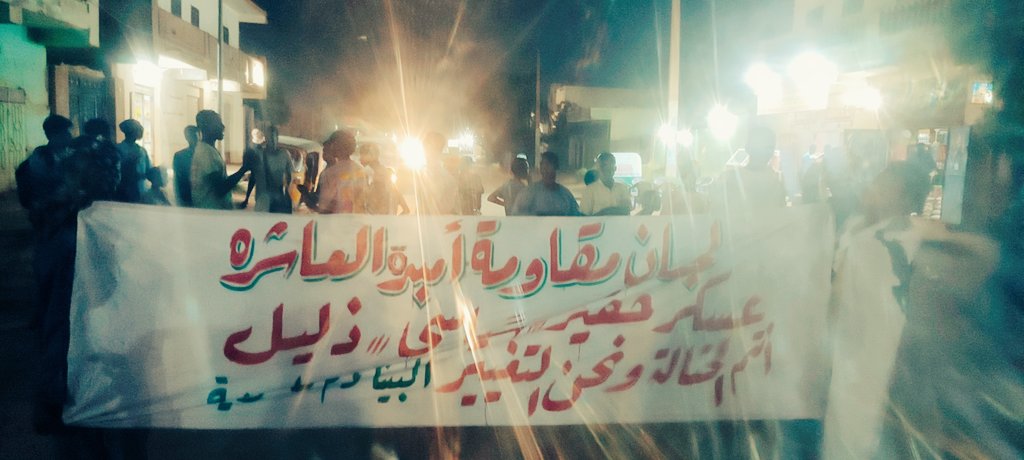 لجان مقاومة أمبدة العاشره
عسكر حقير // سياسي // ذليل
انتم الحثالة ونحن التغيير البينا دم